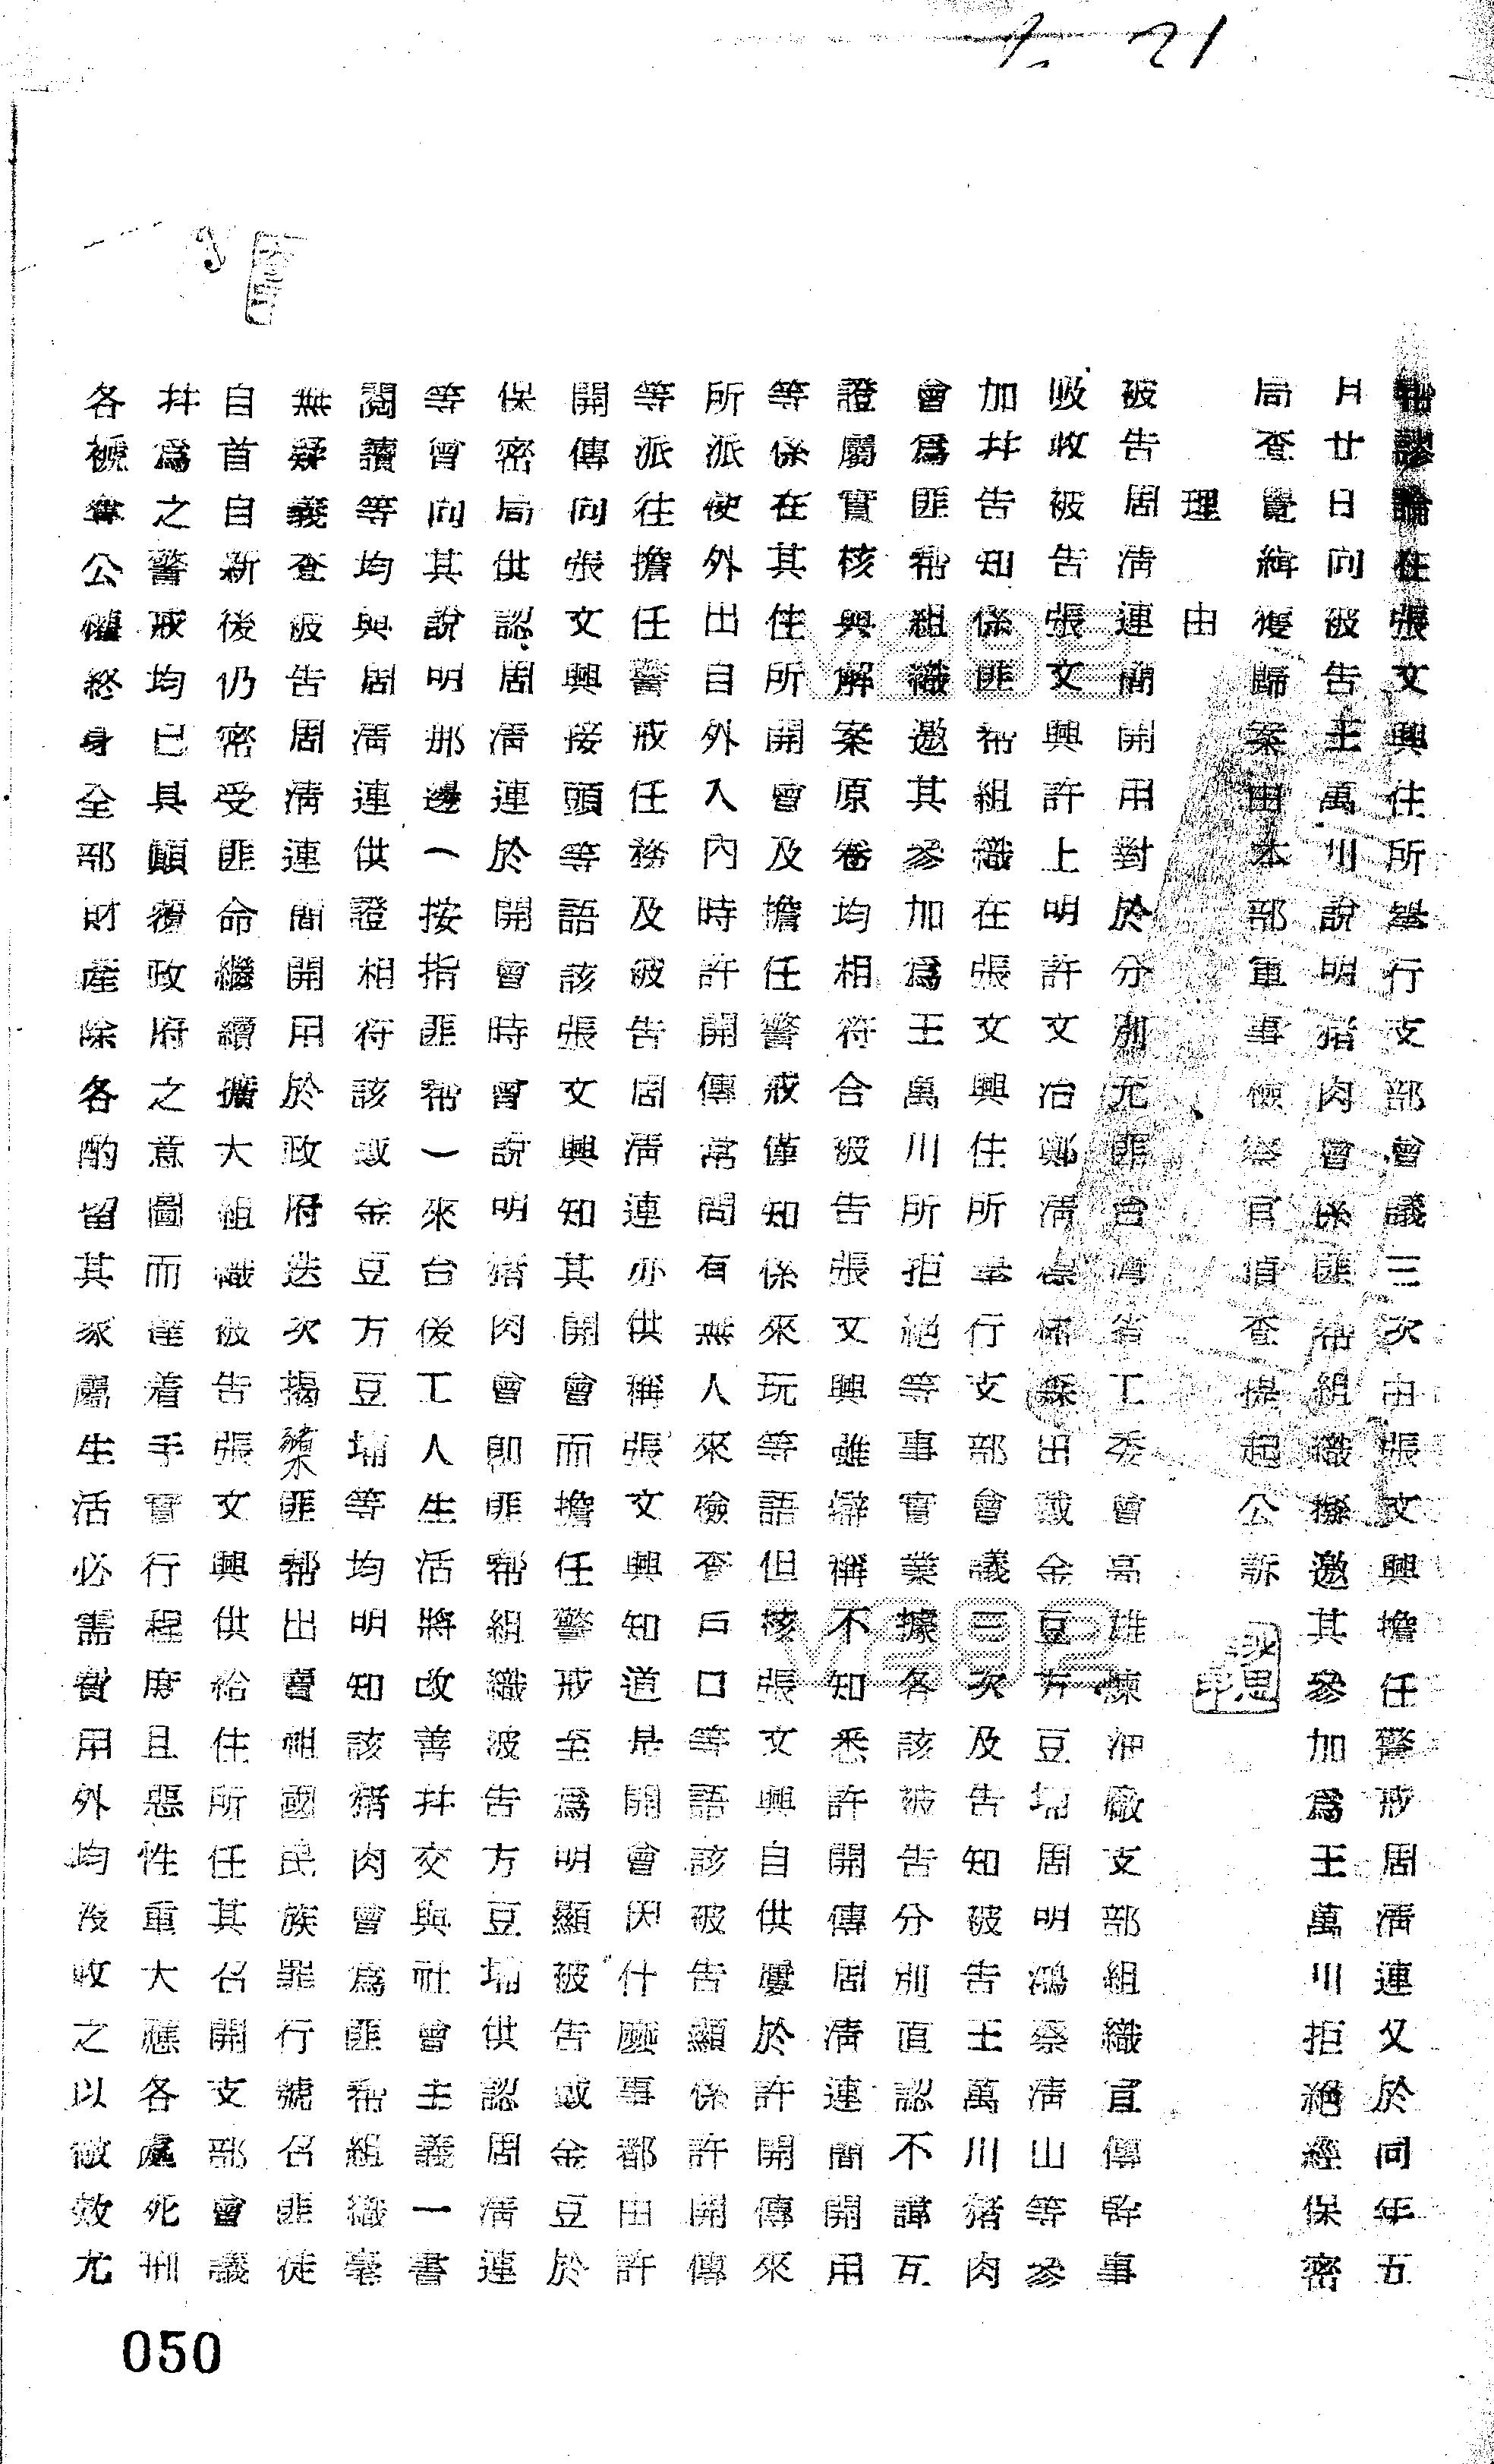 謬論在張文興住所舉行支部會議三次由張文興擔任警戒周清連又於同年五
月廿日向被告王萬川說明豬肉會係匪幫組織擬邀其參加為王萬川拒絕經保密
局查覺緝獲歸案由本部軍事檢察官偵查提起公訴
理由
被告周清連簡開用對於分別充匪台灣省工委會高雄煉油廠支部組織宣傳幹事
吸收被告張文興許上明許文治鄭清出戴金豆方豆埔周明鴻蔡清山等參
加并告知係匪幫組織在張文興住所舉行支部會議三次及告知被告王萬川豬肉
會為匪幫組織邀其參加為王萬川所拒絕等事實業據各該被告分別直認不諱互
證屬實核與解案原卷均相符合被告張文興雖辯稱不知悉許開傳周清連簡開用
等係在其住所開會及擔任警戒僅知係來玩等語但核張文興自供屢於許開傳來
所派使外出自外入內時許開傳常問有無人來檢查戶口等語該被告顯係許開傳
等派往擔任警戒任務及被告周清連亦供稱張文興知道是開會因什麼事都由許
開傳向張文興接頭等語該張文興知其開會而擔任警戒至為明顯被告戴金豆於
保密局供認周清連於開會時曾說明豬肉會即匪幫組織被告方豆埔供認周清連
等曾向其說明那邊一按指匪幫一來台後工人生活將改善并交與社會主義一書
閱讀等均與周清連供證相符該戴金豆方豆埔等均明知該豬肉會為匪幫組織毫
無疑義查被告周清連簡開用於政府迭次揭櫫匪幫出賣祖國民族罪行號召匪徒
自首自新後仍密受匪命繼續擴大組織被告張文興供給住所任其召開支部會議
并為之警戒均已具顛覆政府之意圖而達着手實行程度且惡性重大應各處死刑
各褫奪公權終身全部財產除各酌留其家屬生活必需費用外均沒收之以儆效尤
050